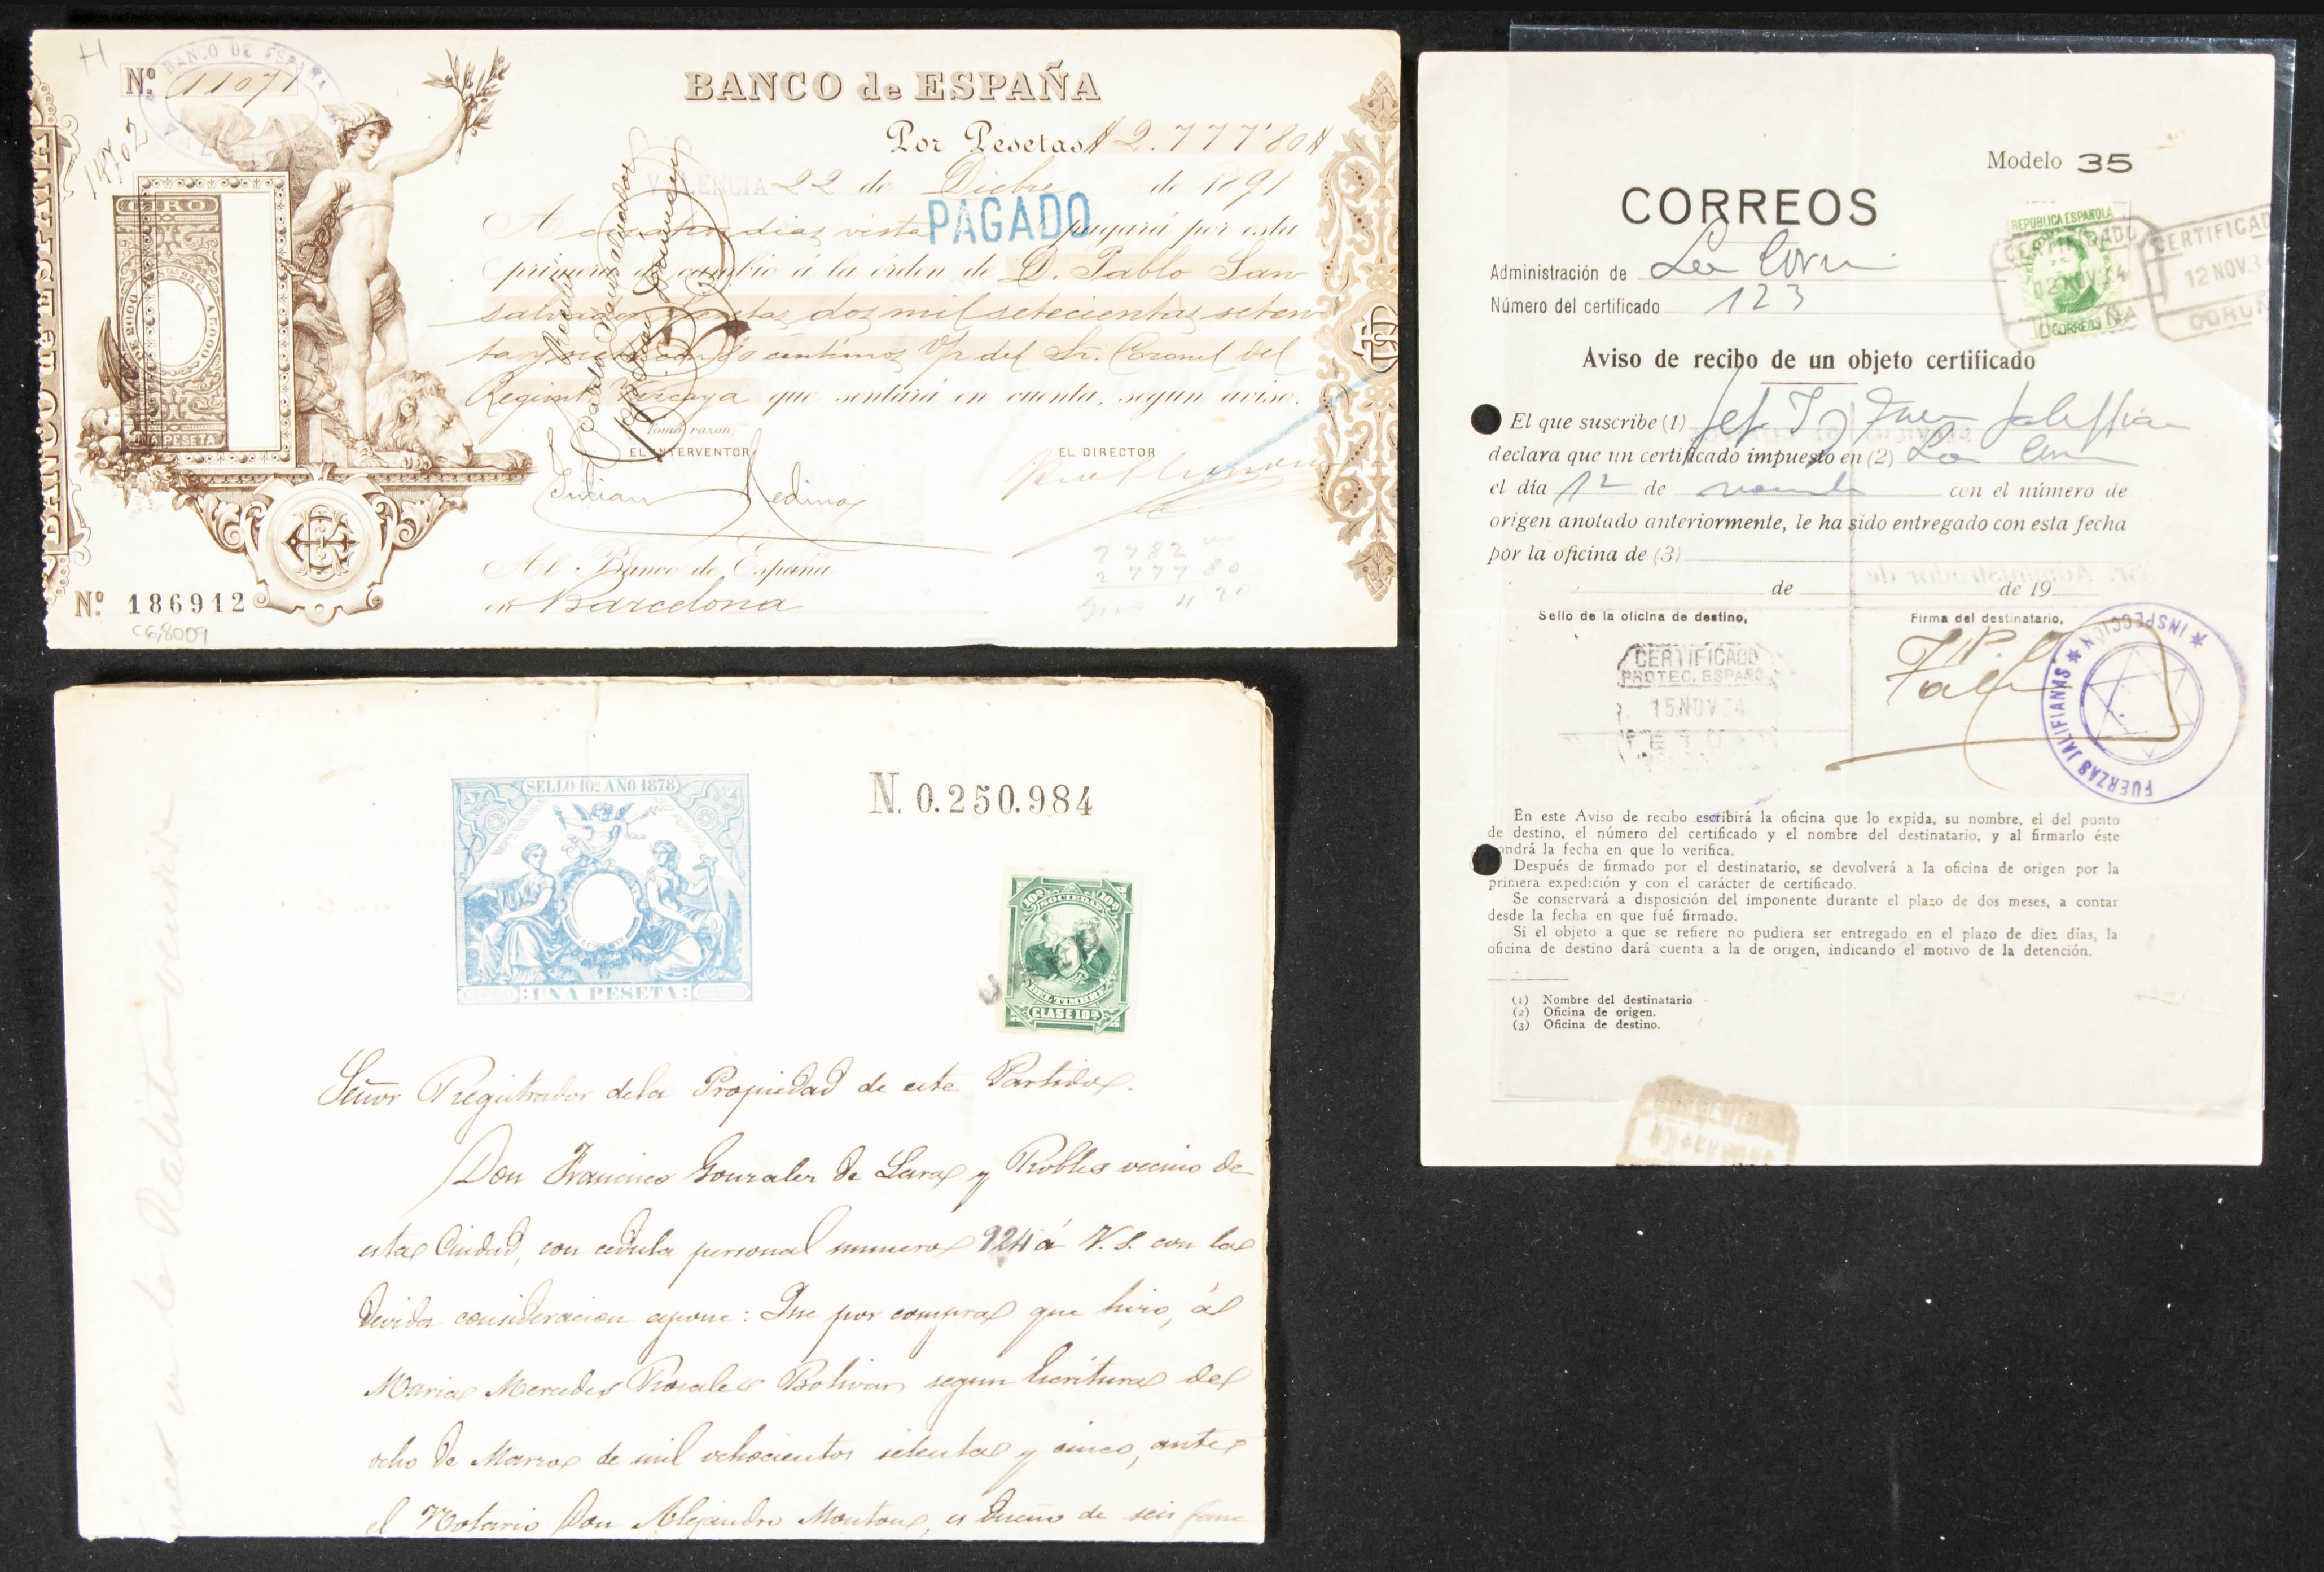 BANCO DE ESPAÑA
Nº 11071
14702
BANCO de ESPAÑA
Por Pesetas # 2.777'80 #
VALENCIA 22 de Dicbre de 1891
PAGADO
A cuatro dias vista pagará por esta
primera de cambio á la órden de D. Pablo San
salvador pesetas dos mil setecientas seten
ta y siete con 80 centimos V/r del Sr. Coronel del
Regimto Vizcaya que sentará en cuenta, segun aviso.
Tomó razon,
EL INTERVENTOR
EL DIRECTOR
Julian Medina
Al Banco de España
en Barcelona
2782
2777 80
4 20
GIRO
UNA PESETA
BANCO de ESPAÑA
Nº 186912
C6,8009
SELLO 10º AÑO 1878
UNA PESETA
N. 0.250.984
10ª SOCIEDAD 10ª
DEL TIMBRE
CLASE 10ª
Señor Registrador de la Propiedad de este Partido.
Don Francisco Gonzalez de Lara y Robles vecino de
esta Ciudad, con cedula personal numero 924 á V.S. con la
devida consideracion espone: Que por compra que hizo, á
Maria Mercedes Rosales Bolivar segun escritura del
ocho de Marzo de mil ochocientos setenta y cinco, ante
el Notario Don Alejandro Montoro, es dueño de seis fane
Modelo 35
CORREOS
REPUBLICA ESPAÑOLA
CORREOS
CERTIFICADO
12 NOV 34
CORUÑA
CERTIFICADO
12 NOV 3
CORUÑ
Administración de La Coru
Número del certificado 123
Aviso de recibo de un objeto certificado
El que suscribe (1)
declara que un certificado impuesto en (2) La Coru
el día 12 de novembre con el número de
origen anotado anteriormente, le ha sido entregado con esta fecha
por la oficina de (3)
de de 19
Sello de la oficina de destino,
Firma del destinatario,
CERTIFICADO
PROTEC. ESPAÑO
15 NOV 34
FUERZAS JALIFIANAS * INSPECCION *
En este Aviso de recibo escribirá la oficina que lo expida, su nombre, el del punto
de destino, el número del certificado y el nombre del destinatario, y al firmarlo éste
ondrá la fecha en que lo verifica.
Después de firmado por el destinatario, se devolverá a la oficina de origen por la
primera expedición y con el carácter de certificado.
Se conservará a disposición del imponente durante el plazo de dos meses, a contar
desde la fecha en que fué firmado.
Si el objeto a que se refiere no pudiera ser entregado en el plazo de diez días, la
oficina de destino dará cuenta a la de origen, indicando el motivo de la detención.
(1) Nombre del destinatario
(2) Oficina de origen.
(3) Oficina de destino.